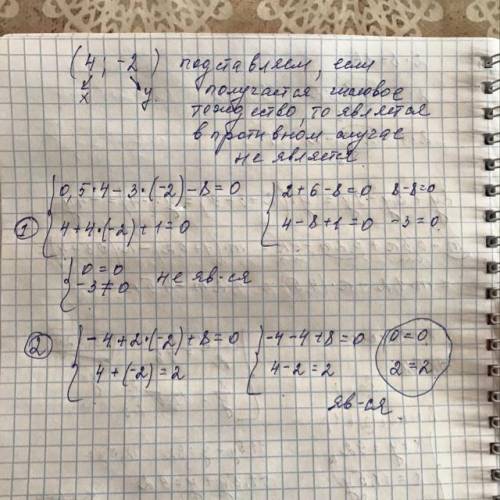 (4; -2) подставляем, если
x y получается числовое
тождество, то является
в противном случае
не является.
① { 0,5·4-3·(-2)-8=0 { 2+6-8=0 8-8=0
4+4·(-2)+1=0 4-8+1=0 -3=0
{ 0=0 не яв-ся
-3≠0
② { -4+2·(-2)+8=0 { -4-4+8=0 0=0
4+(-2)=2 4-2=2 2=2
яв-ся